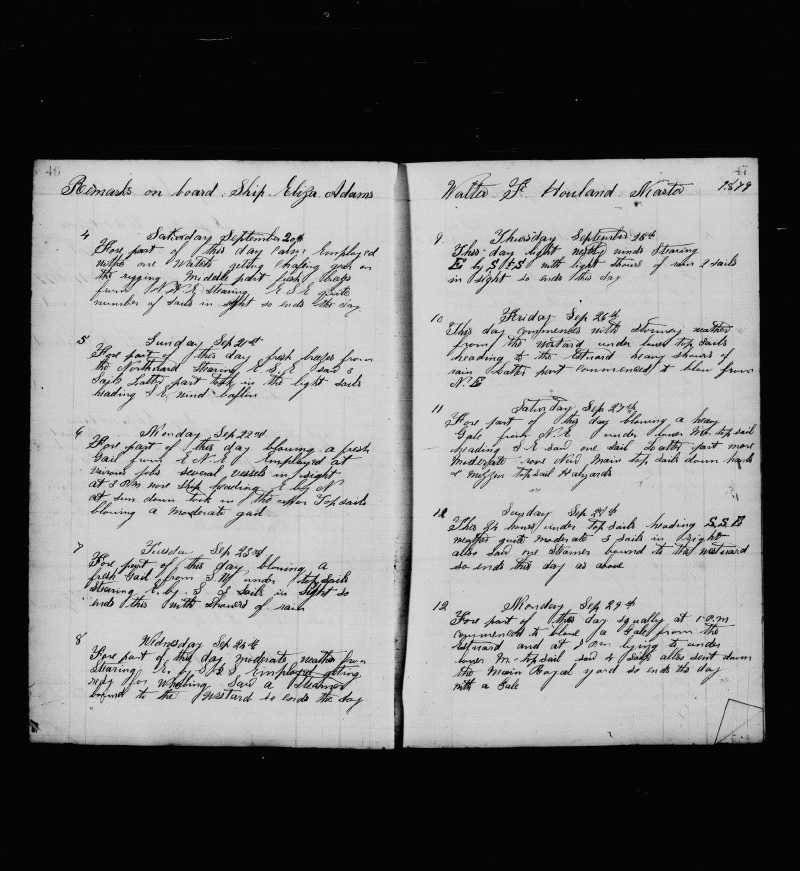 46
Remarks on board Ship Eliza Adams
4 Saturday September 20th
Fore part of this day calm Employed
with one Watch giting chafing gear on
the rigging Middle part fresh breeps
from N.N.E Stearing E.S.E quite
number of sails in sight so ends the day
5 Sunday Sep 21st
Fore part of this day fresh breeps from
the Northard Stearing E.S.E said 3
Sails Latter part took in the light sails
heading S.E wind baflin
6 Monday Sep 22nd
Fore part of this day blowing a fresh
Gail from E.N.E Employed at
various jobs several vessels in sight
at 3 P.m wore Ship heading E by N
at Sun down took in the upper Topsails
blowing a moderate gail
7 Tuesday Sep 23rd
Fore part of this day blowing a
fresh Gail from S.W under topsails
Stearing E. by. S 5 Sails in Sight so
ends this with Showers of rain
8 Wednesday Sep 24th
Fore part of this day moderate weather from
Stearing E. by S.&.S Employed geting
redy for Whaling Saw a Steamer
bound to the Westard so ends the day
47
Walter F. Howland Master 1879
9 Thursday September 25th
This day light westly winds Stearing
E by S.&.S with light Shours of rain 2 sails
in Sight so ends this day
10 Friday Sep 26th
This day commences with stormey weather
from the Westard under lower top sails
heading to the Estward heavy showers of
rain Latter part commenced to blow from
N.E
11 Saturday Sep 27th
Fore part of this day blowing a heay
Gale from N.E under lower M. top sail
heading S.E saw one sail Latter part more
moderate rove New main top Sails down hauls
& mizzen topsail Halyards
12 Sunday Sep 28th
This 24 hours under topsails heading S,S,E
weather quite moderate 3 sails in sight
allso saw one Steamer bound to the westward
so ends this day as above
12 Monday Sep 29th
Fore part of this day Squally at 1 P.m
commenced to blow a Gale from the
Estuard and at 3 P.m lying to under
lower M. topsail said 4 Sails alles sent down
the main Royal yard so ends the day
with a Gale